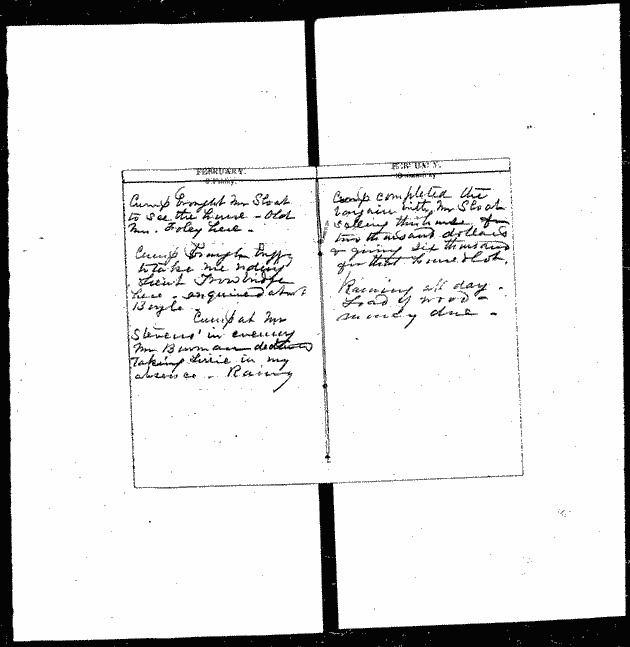 FEBRUARY.
Cump brought Mr Sloat
to see the house - Old
Mr. Foley here -
Cump brought Buggy
to take me riding
Lieut Trowbridge
here - enquired about
Boyle
Cump at Mr
Stevens' in evening
Mr Bowman
taking Lizzie in my
absence - Rainy
FEBRUARY.
Cump completed the
bargain with Mr Sloat
selling this house for
two thousand dollars
& giving six thousand
for that house & lot,
Raining all day -
Load of wood -
money due -